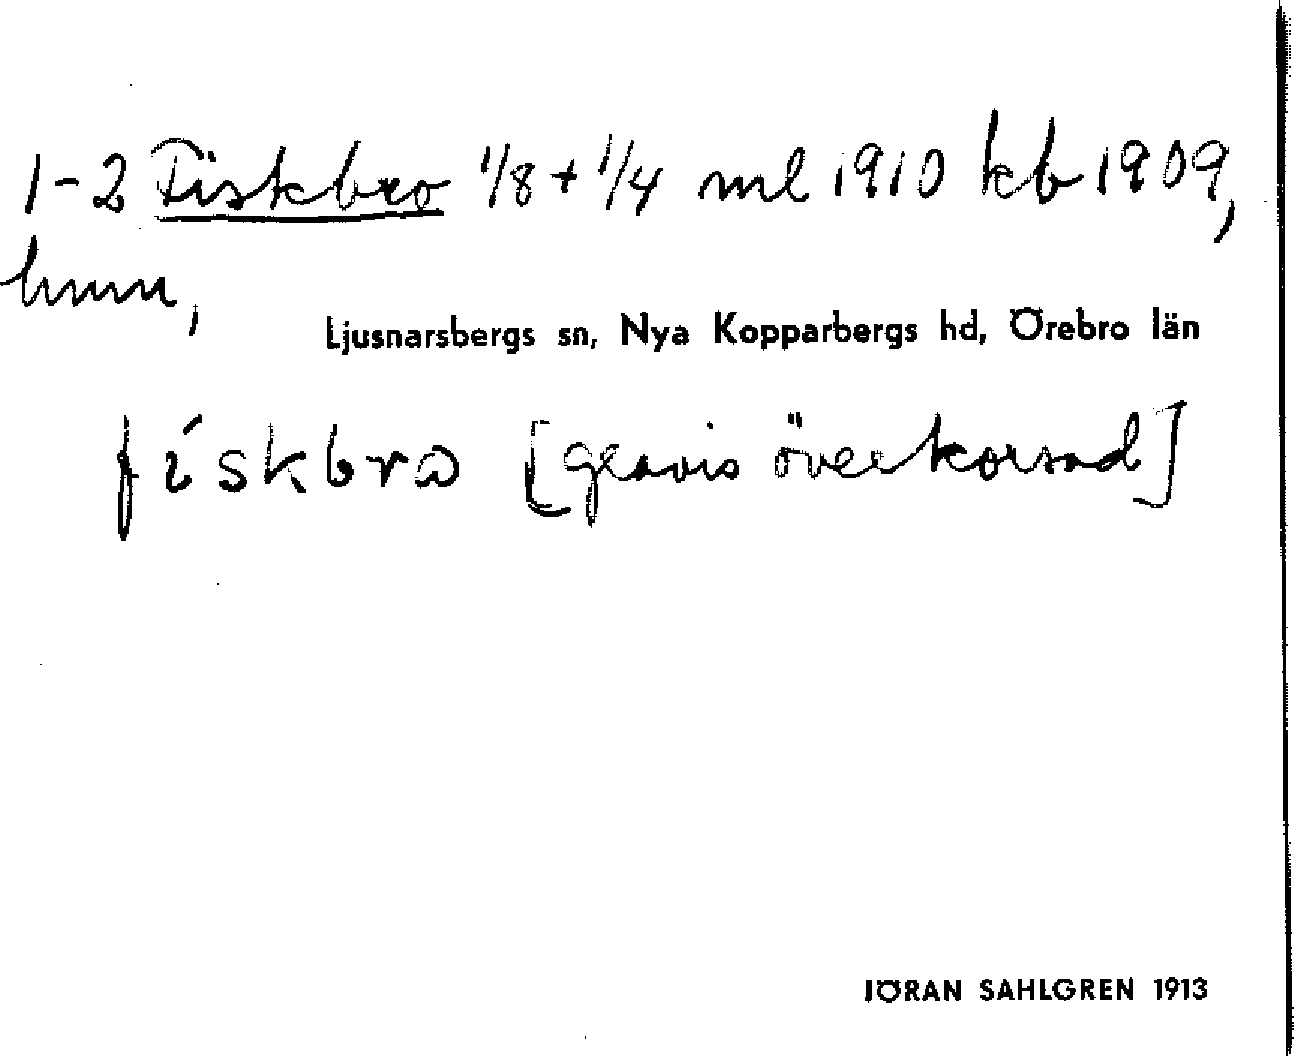 1-2 Fiskbro 1/8 + 1/4 ml 1910 kb 1909,
hmn,
Ljusnarsbergs sn, Nya Kopparbergs hd, Örebro län
fískbrω [gravis överkorsad]
JÖRAN SAHLGREN 1913